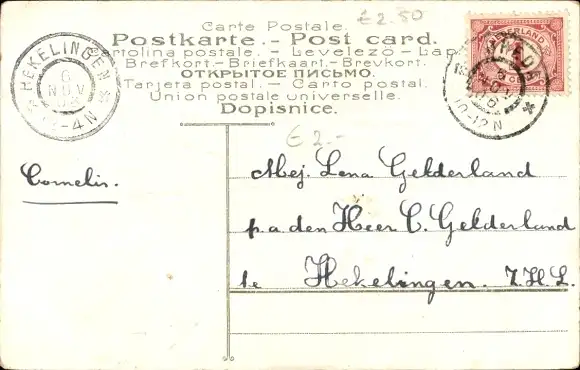 €2.50
Carte Postale.
Postkarte. - Post card.
Cartolina postale. - Levelező-Lap
Brefkort.-Briefkaart.-Brevkort.
ОТКРЫТОЕ ПИСЬМО.
Tarjeta postal. - Carto postal.
Union postale universelle.
Dopisnice.
HEKELINGEN
6
NOV
-4N
NEDERLAND
10-12N
€2.-
Cornelis.
Mej. Lena Gelderland
p.a den Heer C. Gelderland
te Hekelingen. Z.H.L.